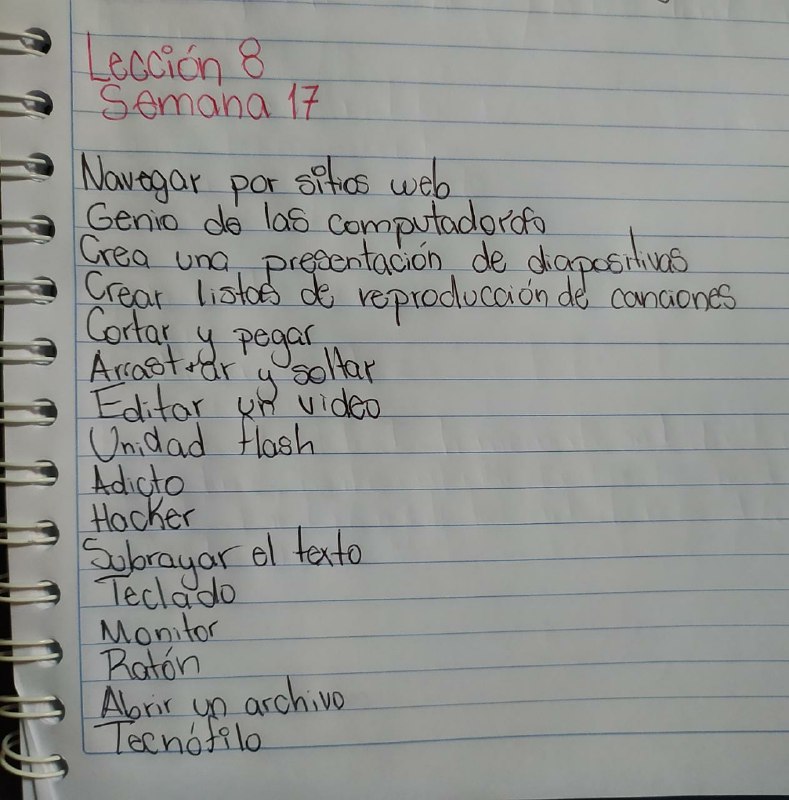 Lección 8
Semana 17
Navegar por sitios web
Genio de las
Crea una presentación de diapositivas
Crear listas de reproducción de canciones
Cortar y pegar
Arrastrar y soltar
Editar un video
Unidad flash
Adicto
Hacker
Subrayar el texto
Teclado
Monitor
Ratón
Abrir un archivo
Tecnófilo